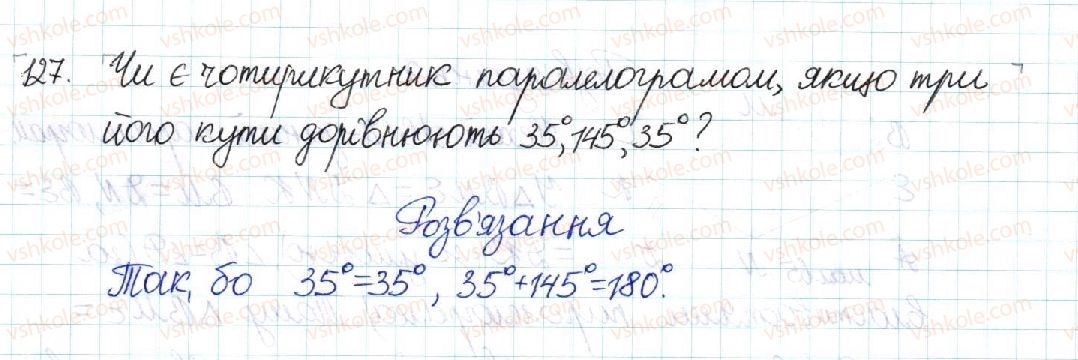 127. Чи є чотирикутник паралелограмом, якщо три
його кути дорівнюють 35°, 145°, 35°?
Розв'язання
Так, бо 35°=35°, 35°+145°=180°.